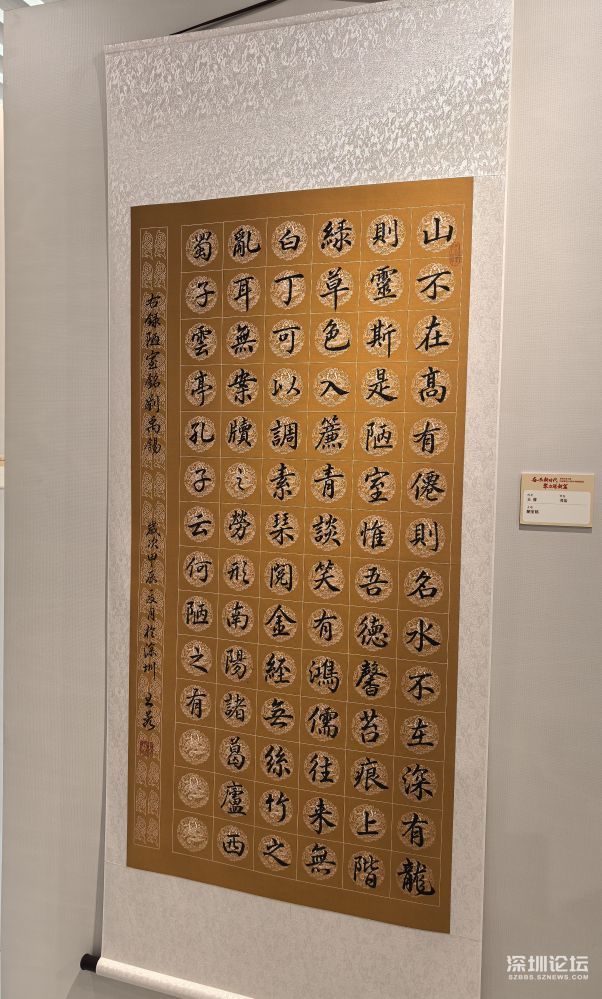 山不在高有僊則名水不在深有龍
則靈斯是陋室惟吾德馨苔痕上階
緑草色入簾青談笑有鴻儒往来無
白丁可以調素琹閲金經無絲竹之
亂耳無案牘之勞形南陽諸葛廬西
蜀子雲亭孔子云何陋之有
右録陋室銘劉禹錫
歲次甲辰夏月於深圳 王
新时代
新篇
深圳论坛
SZBBS.SZNEWS.COM